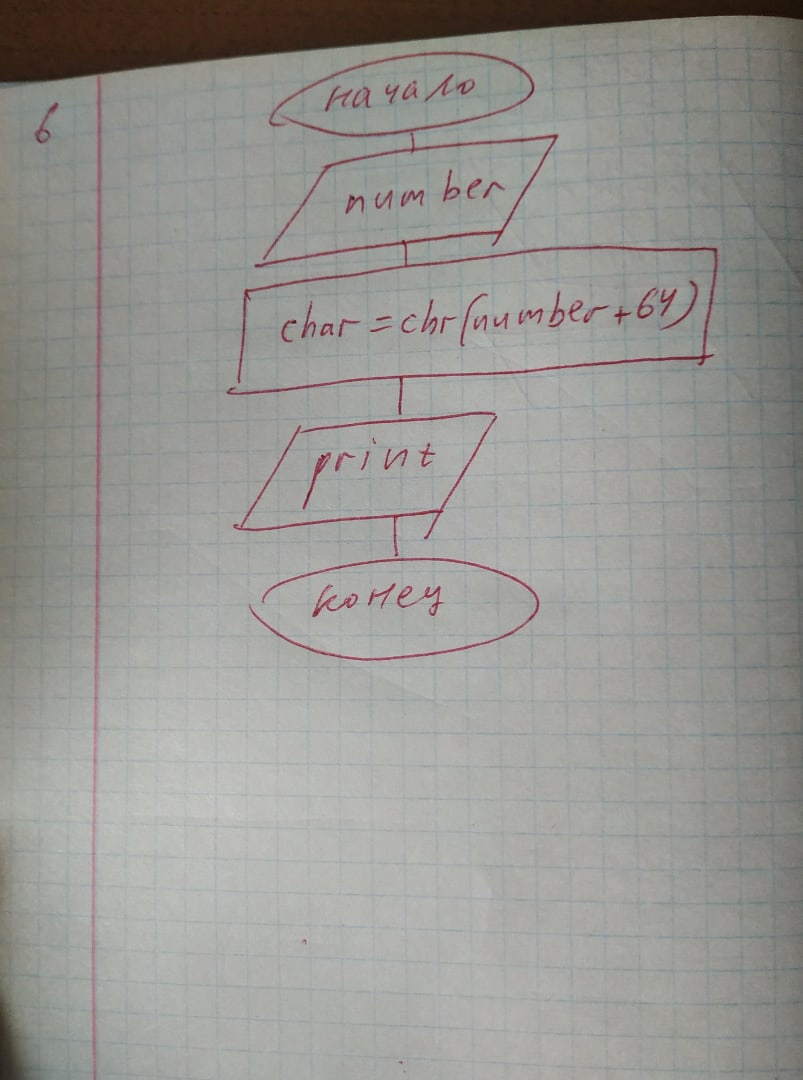 6
начало
number
char = chr(number+64)
print
конец